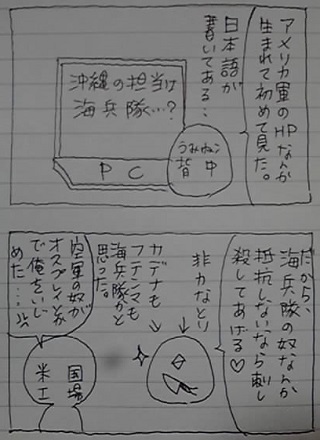 アメリカ軍のHPなんか
生まれて初めて見た。
日本語が
書いてある…
沖縄の担当は
海兵隊…?
うみねこ
背中
PC
だから、
海兵隊の奴なんか
抵抗しないなら刺し
殺してあげる♡
非力なとり
カデナも
フテンマも
海兵隊かと
思った。
空軍の奴が
オスプレイとか
で俺をいじ
めた…
国場
米工